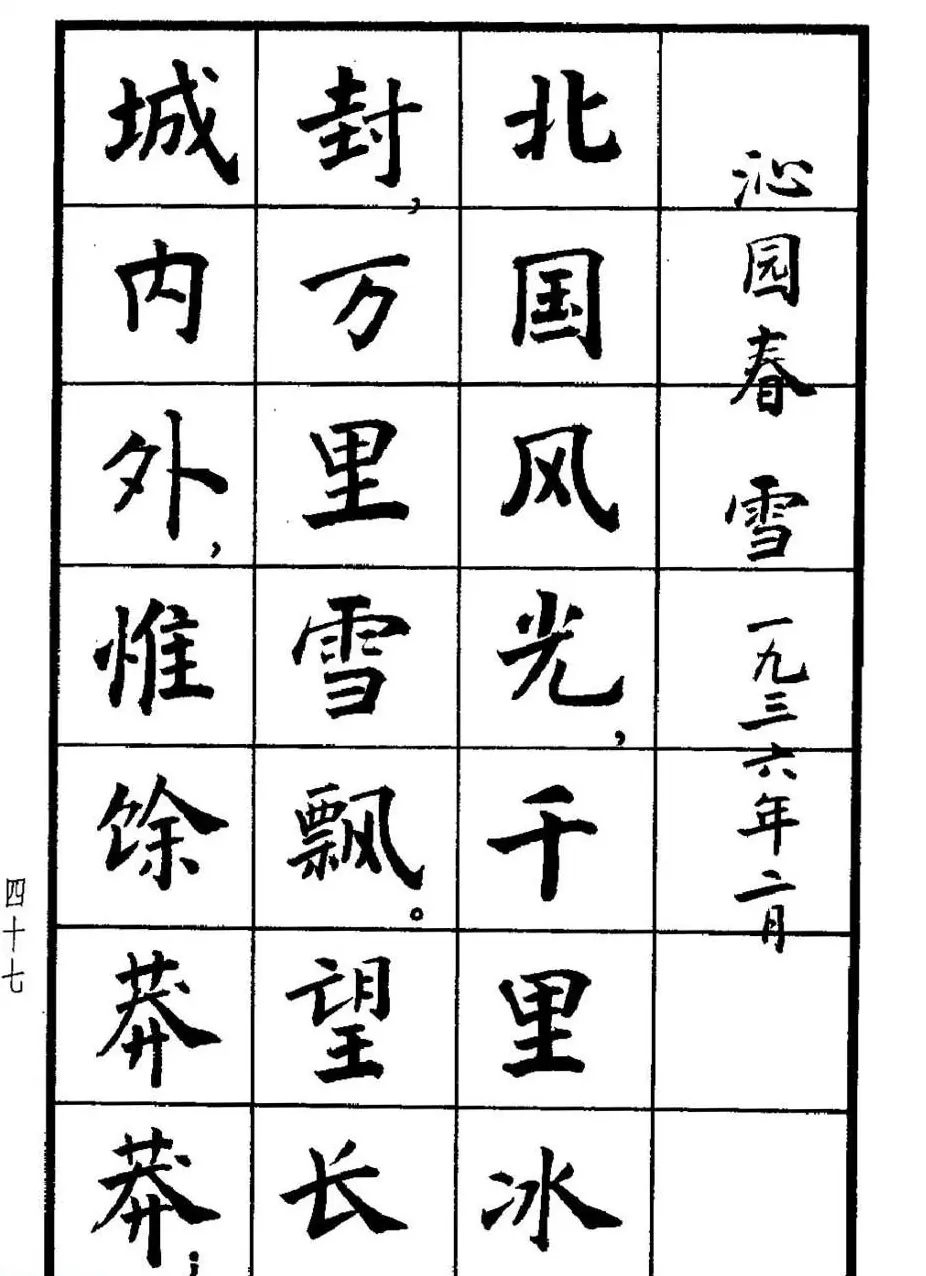 沁园春 雪 一九三六年二月
北国风光,千里冰
封,万里雪飘。望长
城内外,惟馀莽莽;
四十七